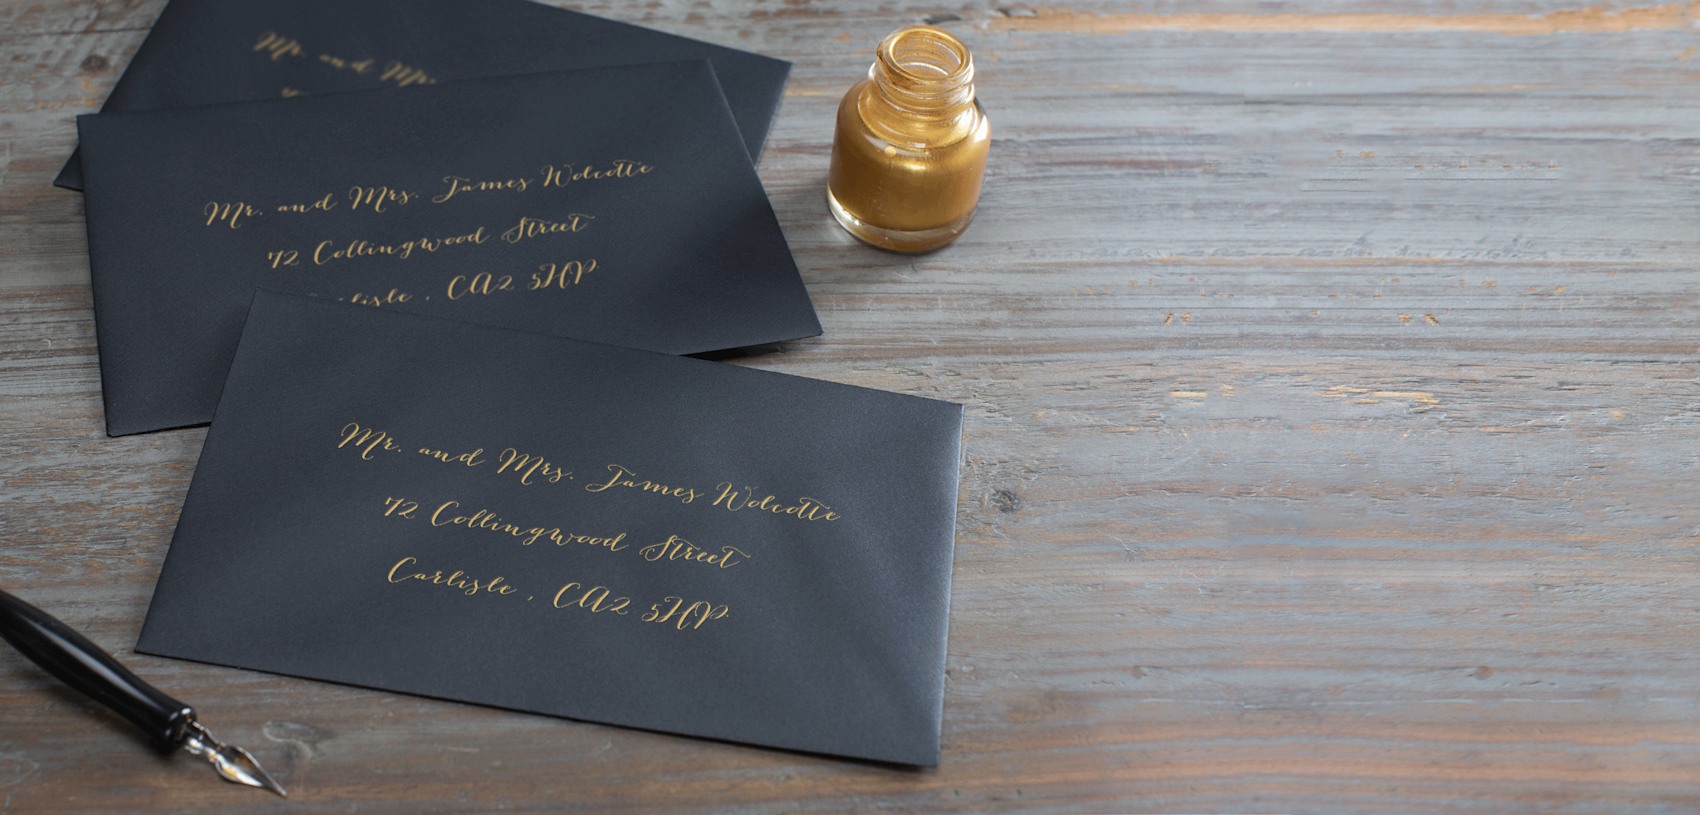 Mr. and Mr.
Mr. and Mrs. James Wolcotte
72 Collingwood Street
Carlisle , CA2 5HP
Mr. and Mrs. James Wolcotte
72 Collingwood Street
Carlisle , CA2 5HP